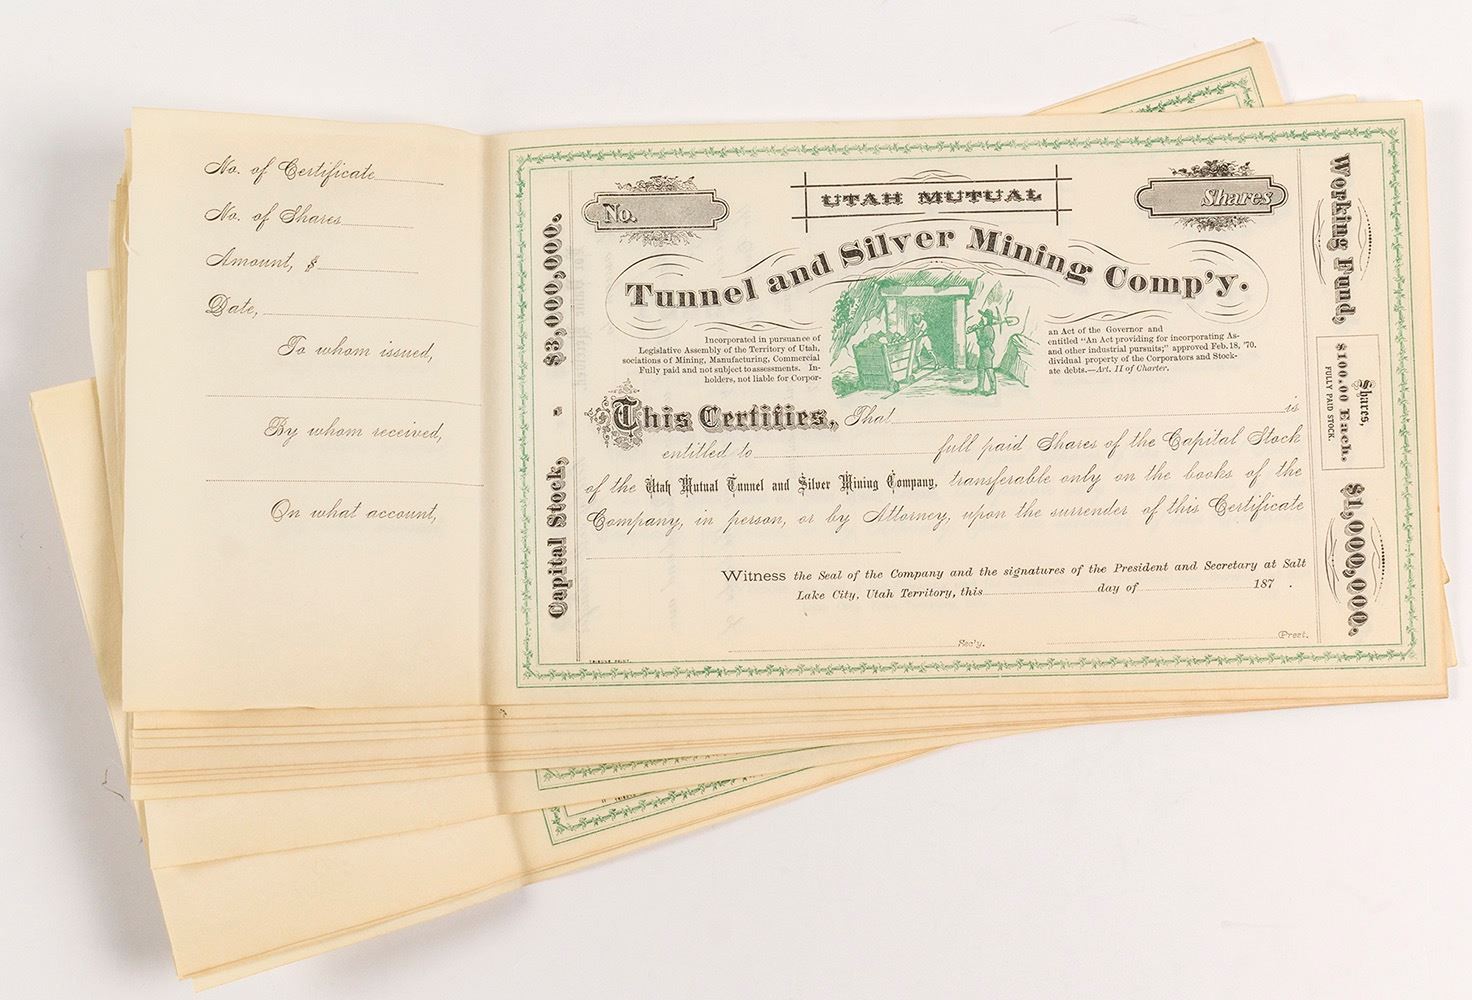 No. of Certificate
No. of Shares
Amount, $
Date,
To whom issued,
By whom received,
On what account,
Capital Stock, - $3,000,000.
No.
UTAH MUTUAL
Shares
Tunnel and Silver Mining Comp'y.
Incorporated in pursuance of an Act of the Governor and
Legislative Assembly of the Territory of Utah, entitled "An Act providing for incorporating As-
sociations of Mining, Manufacturing, Commercial and other industrial pursuits;" approved Feb. 18, '70.
Fully paid and not subject to assessments. In- dividual property of the Corporators and Stock-
holders, not liable for Corpor- ate debts.—Art. II of Charter.
This Certifies, That is
entitled to full paid Shares of the Capital Stock
of the Utah Mutual Tunnel and Silver Mining Company, transferable only on the books of the
Company, in person, or by Attorney, upon the surrender of this Certificate
Witness the Seal of the Company and the signatures of the President and Secretary at Salt
Lake City, Utah Territory, this day of 187 .
Sec'y. Prest.
TRIBUNE PRINT.
Working Fund, $1,000,000.
Shares,
$100.00 Each.
FULLY PAID STOCK.